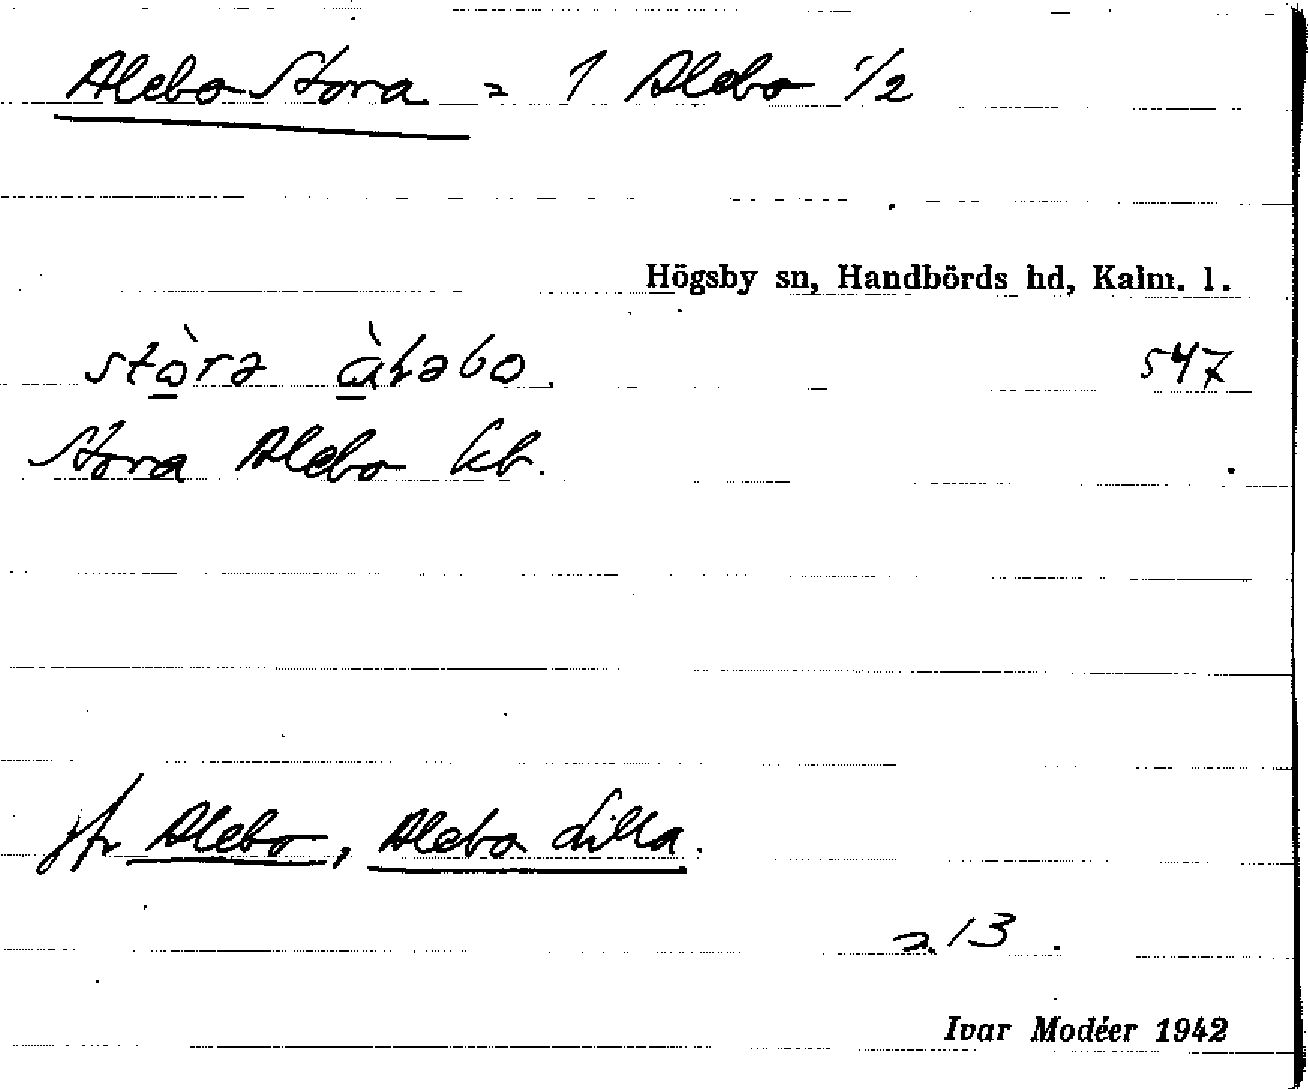 Alebo Stora = 1 Alebo 1/2
Högsby sn, Handbörds hd, Kalm. l.
stò̠rə à̠ləbo. 547
Stora Alebo kb.
jfr Alebo, Alebo Lilla.
a.13.
Ivar Modéer 1942